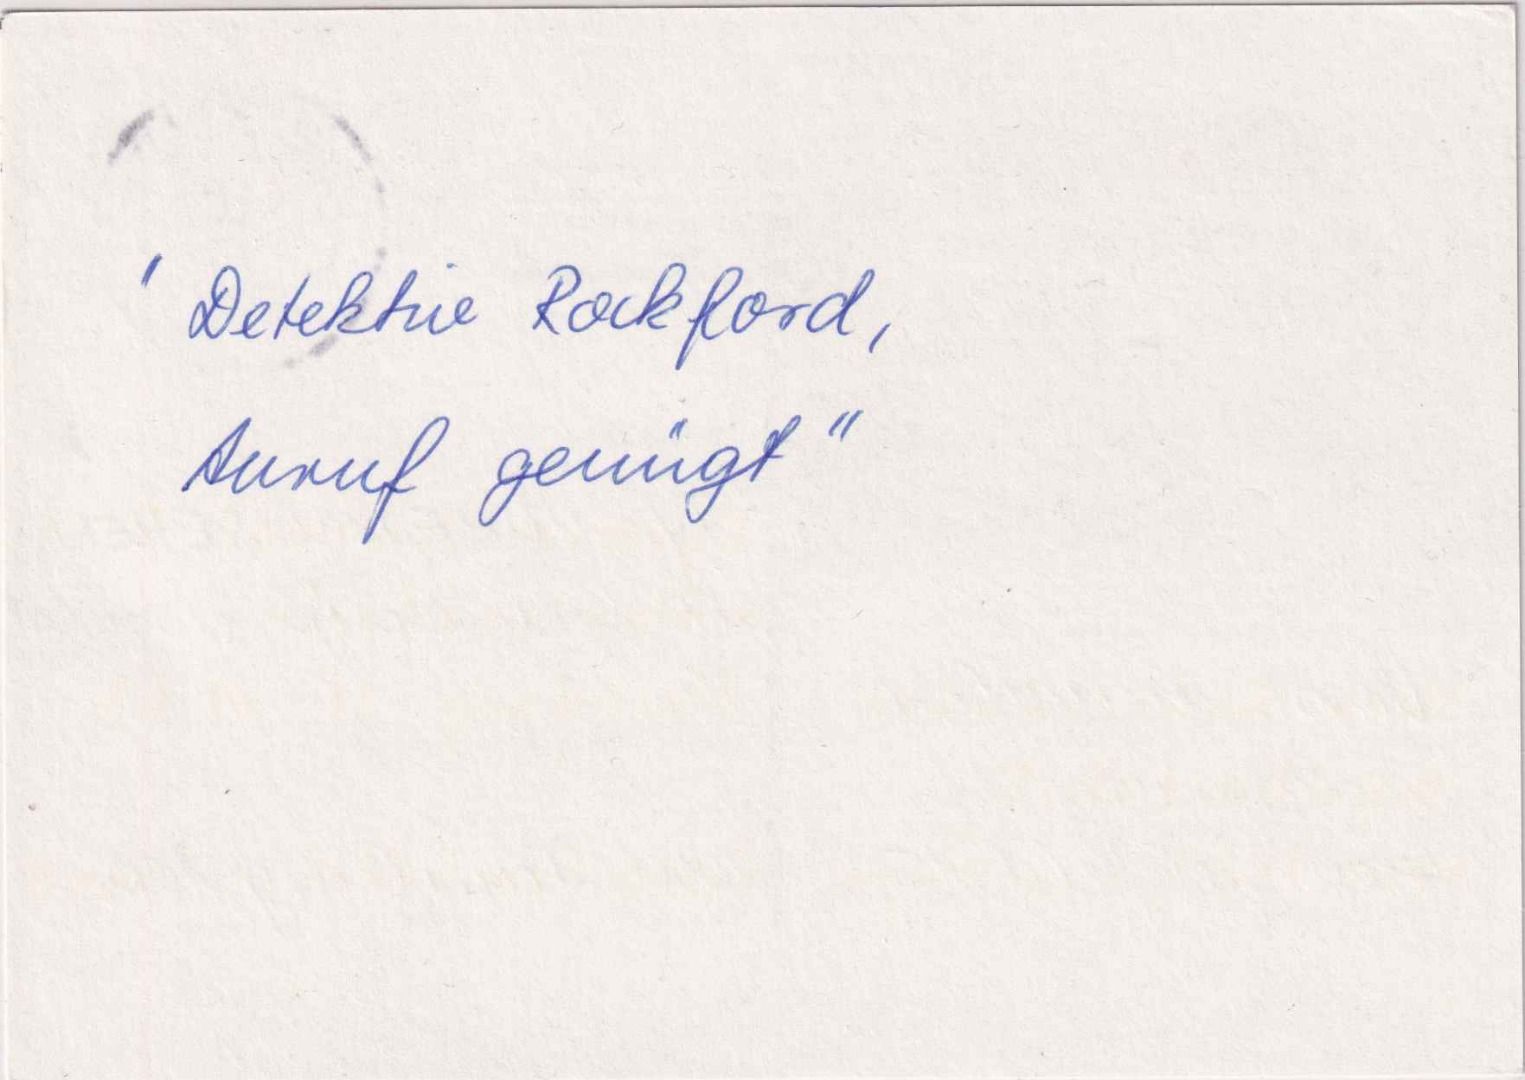 "Detektiv Rockford,
Anruf genügt"